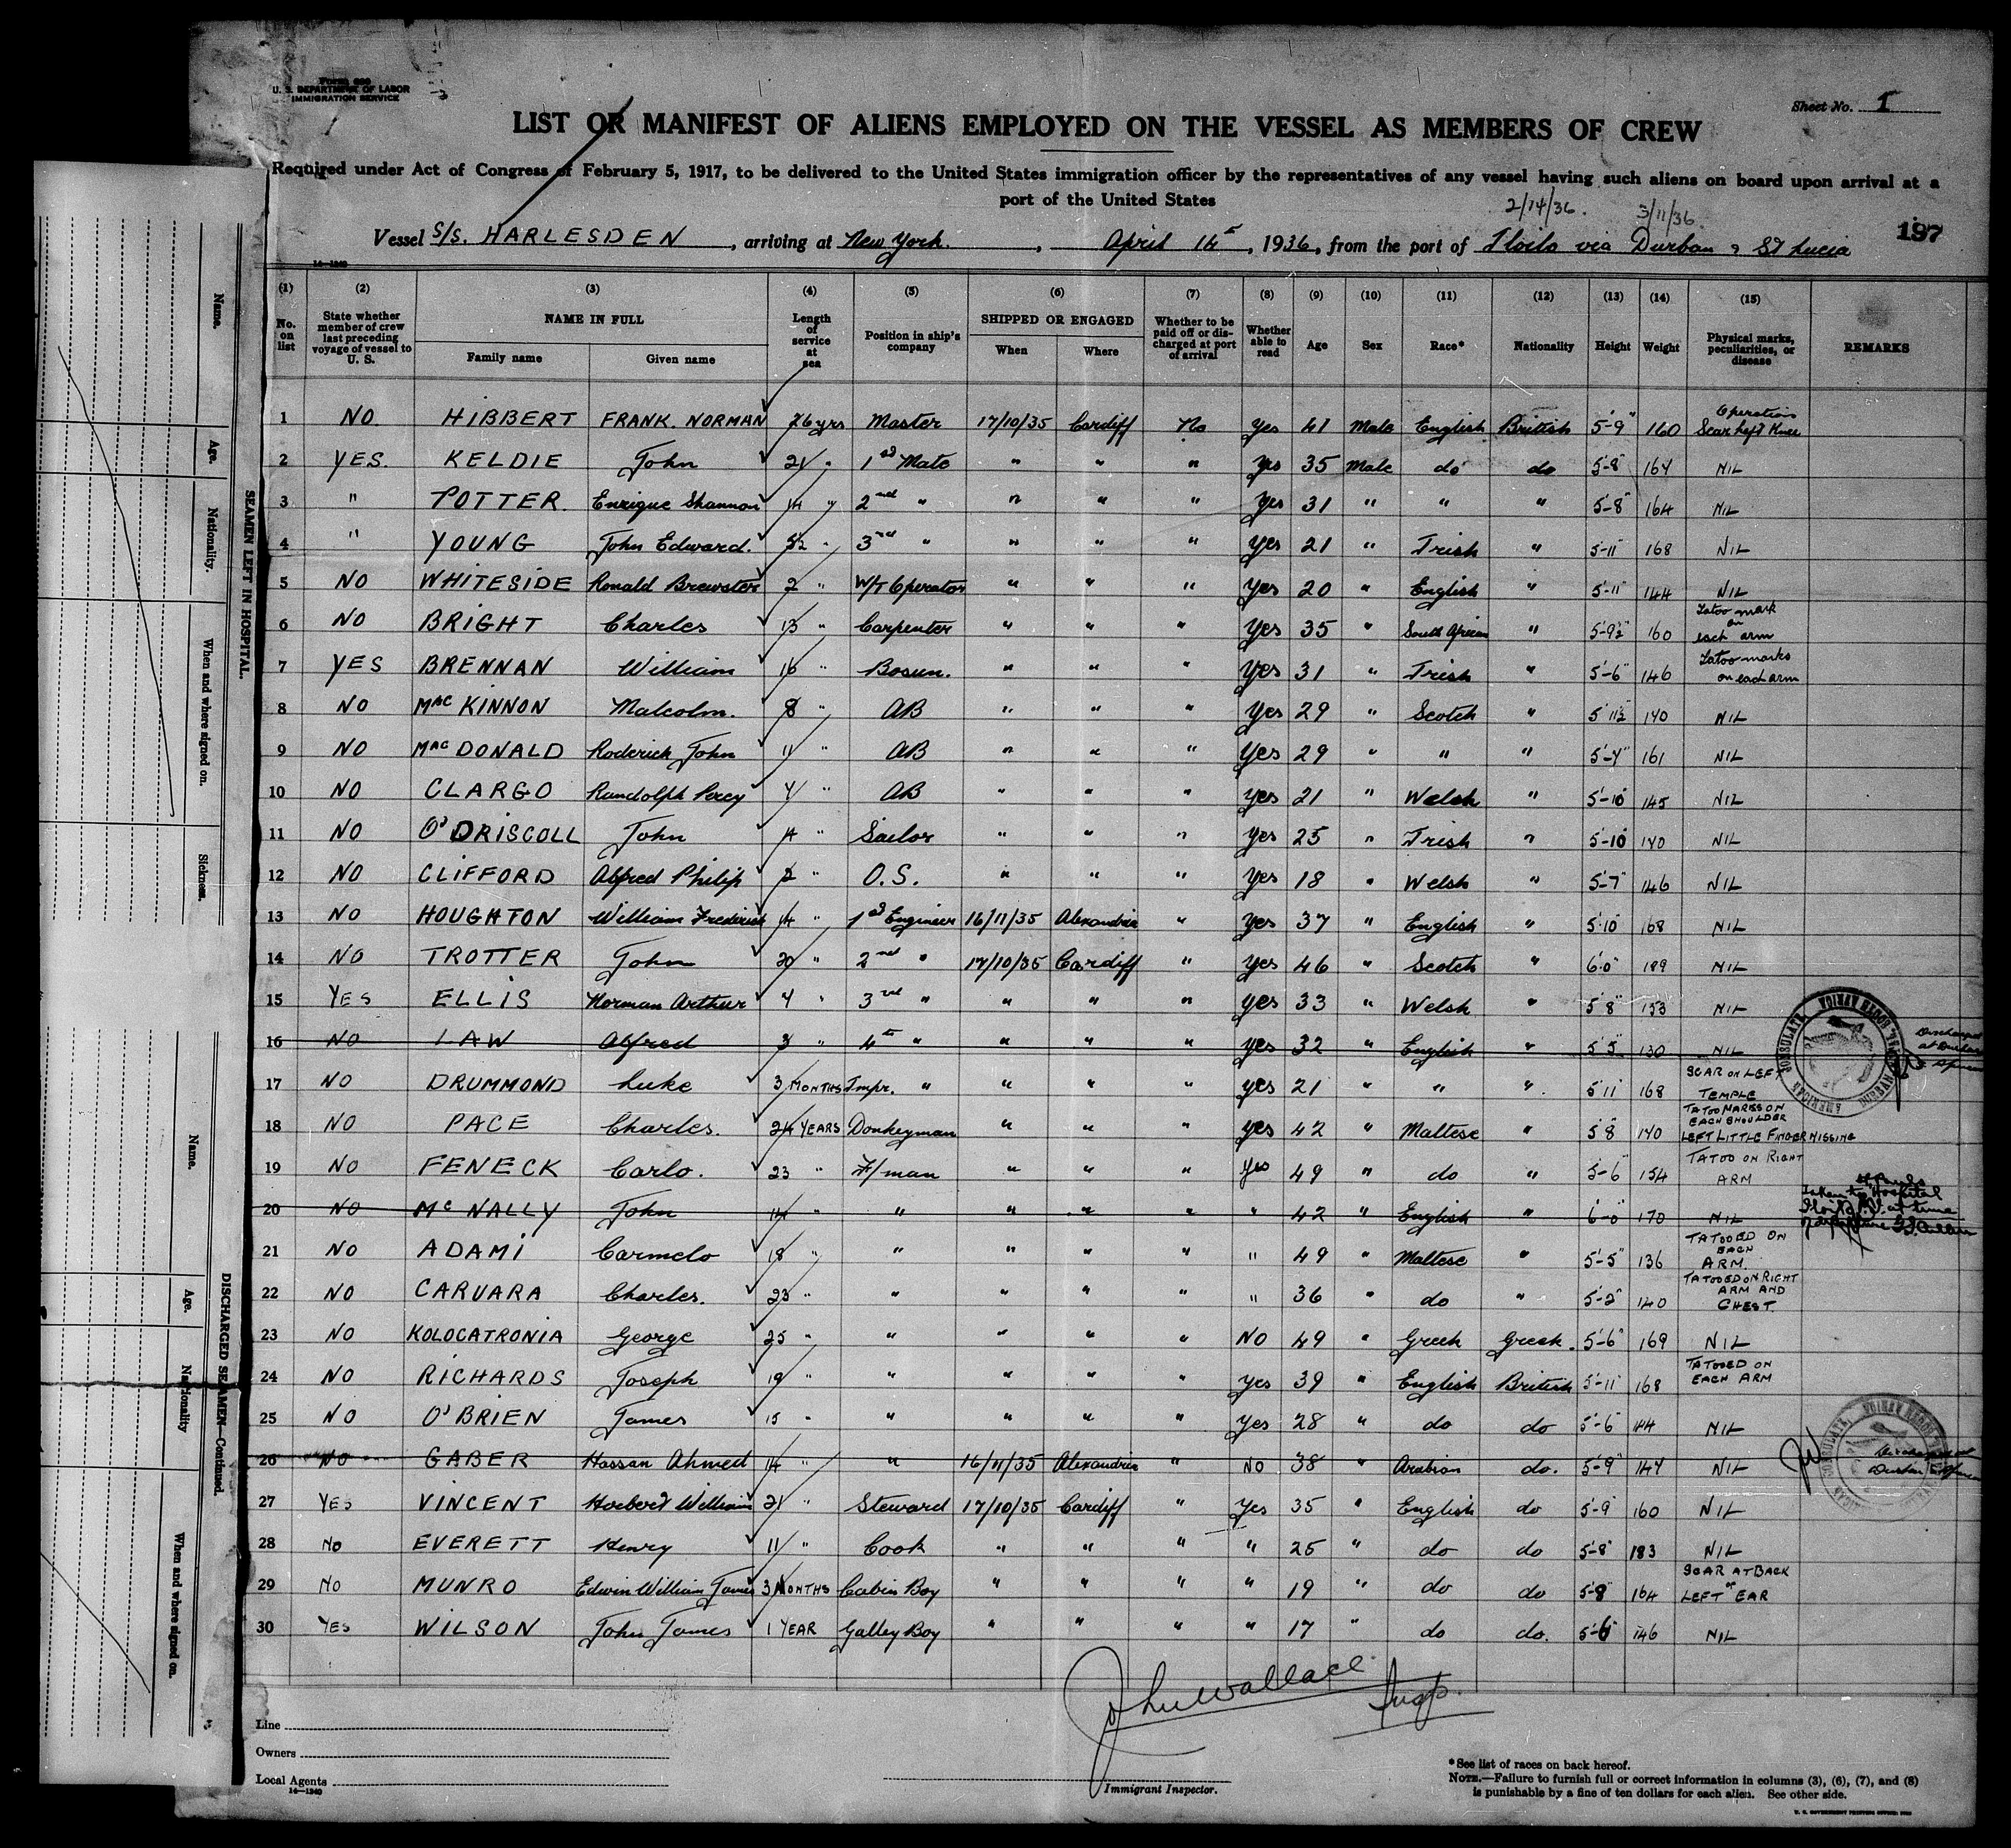 Form 680
U. S. DEPARTMENT OF LABOR
IMMIGRATION SERVICE
Sheet No. 1
LIST OR MANIFEST OF ALIENS EMPLOYED ON THE VESSEL AS MEMBERS OF CREW
Required under Act of Congress of February 5, 1917, to be delivered to the United States immigration officer by the representatives of any vessel having such aliens on board upon arrival at a
port of the United States
2/14/36. 3/11/36
Vessel S/S. HARLESDEN, arriving at New York., April 14th, 1936, from the port of Iloilo via Durban & St Lucia
197
14-1240
(1) (2) (3) (4) (5) (6) (7) (8) (9) (10) (11) (12) (13) (14) (15)
No. on list
State whether member of crew last preceding voyage of vessel to U. S.
NAME IN FULL
Family name Given name
Length of service at sea
Position in ship's company
SHIPPED OR ENGAGED
When Where
Whether to be paid off or discharged at port of arrival
Whether able to read
Age Sex Race* Nationality Height Weight
Physical marks, peculiarities, or disease
REMARKS
1 NO. HIBBERT FRANK. NORMAN 26 yrs Master 17/10/35 Cardiff No Yes 41 Male English British 5'-9" 160 Operation Scar Left Knee
2 YES. KELDIE John 21 " 1st Mate " " " Yes 35 Male do do 5'-8" 164 NIL
3 " POTTER. Enrique Shannon 14 " 2nd " " " " Yes 31 " " " 5'-8" 164 NIL
4 " YOUNG John Edward. 5½ " 3rd " " " " Yes 21 " Irish " 5'-11" 168 NIL
5 NO WHITESIDE Ronald Brewster 2 " W/T Operator " " " Yes 20 " English " 5'-11" 144 NIL
6 NO BRIGHT Charles 13 " Carpenter " " " Yes 35 " South African " 5'-9½" 160 Tatoo mark on each arm
7 YES BRENNAN William 16 " Bosun. " " " Yes 31 " Irish " 5'-6" 146 Tatoo marks on each arm
8 NO MacKINNON Malcolm. 8 " AB " " " Yes 29 " Scotch " 5'11½" 140 NIL
9 NO MacDONALD Roderick John 11 " AB " " " Yes 29 " " " 5'-4" 161 NIL
10 NO CLARGO Randolph Percy 4 " AB " " " Yes 21 " Welsh " 5'-10" 145 NIL
11 NO O'DRISCOLL John 4 " Sailor " " " Yes 25 " Irish " 5'-10" 140 NIL
12 NO CLIFFORD Alfred Philip 2 " O.S. " " " Yes 18 " Welsh " 5'-7" 146 NIL
13 NO HOUGHTON William Frederick 14 " 1st Engineer 16/11/35 Alexandria " Yes 37 " English " 5'10" 168 NIL
14 NO TROTTER John 20 " 2nd " 17/10/35 Cardiff " Yes 46 " Scotch " 6'0" 189 NIL
15 YES ELLIS Norman Arthur 4 " 3rd " " " " Yes 33 " Welsh " 5'8" 153 NIL
16 NO LAW Alfred 3 " 4th " " " " Yes 32 " English " 5'5" 130 NIL Discharged at Durban
17 NO DRUMMOND Luke 3 MONTHS Impr. " " " " Yes 21 " " " 5'11" 168 SCAR ON LEFT TEMPLE
18 NO PACE Charles. 24 YEARS Donkeyman " " " Yes 42 " Maltese " 5'8" 140 TATOO MARKS ON EACH SHOULDER LEFT LITTLE FINGER MISSING
19 NO FENECK Carlo. 23 " F/man " " " Yes 49 " do " 5'-6" 154 TATOO ON RIGHT ARM
20 NO McNALLY John 14 " " " " " " 42 " English " 6'-0" 170 NIL Taken to Hospital Iloilo P.I. at time of departure
21 NO ADAMI Carmelo 18 " " " " " " 49 " Maltese " 5'-5" 136 TATOOED ON EACH ARM.
22 NO CARUARA Charles. 23 " " " " " " 36 " do " 5'-2" 140 TATOOED ON RIGHT ARM AND CHEST.
23 NO KOLOCATRONIA George 25 " " " " " NO 49 " Greek Greek. 5'-6" 169 NIL
24 NO RICHARDS Joseph 19 " " " " " Yes 39 " English British 5'-11" 168 TATOOED ON EACH ARM
25 NO O'BRIEN James 15 " " " " " Yes 28 " do do 5'-6" 144 NIL
26 NO GABER Hassan Ahmed 14 " " 16/11/35 Alexandria " NO 38 " Arabian do. 5'-9" 147 NIL Discharged at Durban
27 YES VINCENT Herbert William 21 " Steward 17/10/35 Cardiff " Yes 35 " English do 5'-9" 160 NIL
28 NO EVERETT Henry 11 " Cook " " " " 25 " do do 5'-8" 183 NIL
29 NO MUNRO Edwin William James 3 MONTHS Cabin Boy " " " " 19 " do do 5'-8" 164 SCAR AT BACK OF LEFT EAR
30 YES WILSON John James 1 YEAR Galley Boy " " " " 17 " do do. 5'-6" 146 NIL
AMERICAN CONSULATE
AMERICAN CONSULATE
John Wallace Insp.
Line
Owners
Local Agents
14-1240
Immigrant Inspector.
*See list of races on back hereof.
NOTE.—Failure to furnish full or correct information in columns (3), (6), (7), and (8)
is punishable by a fine of ten dollars for each alien. See other side.
U. S. GOVERNMENT PRINTING OFFICE
SEAMEN LEFT IN HOSPITAL.
Name.
Age.
Nationality.
When and where signed on.
Sickness.
DISCHARGED SEAMEN—Continued.
Name.
Age.
Nationality
When and where signed on.